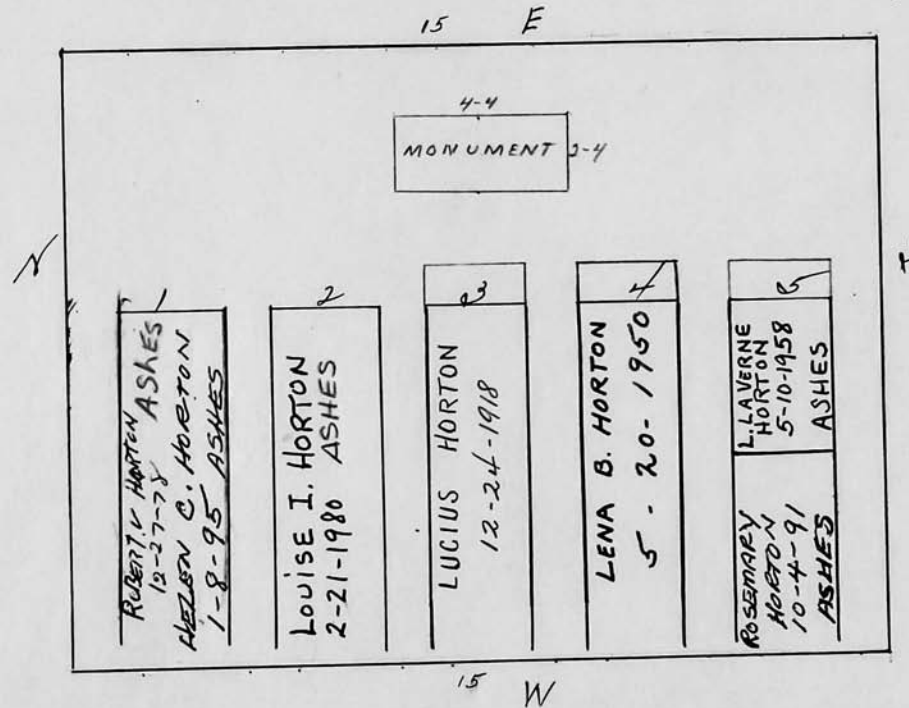 15 E
4-4
MONUMENT 2-4
N
1
ROBERT V HORTON
12-27-78 ASHES
HELEN C. HORTON
1-8-95 ASHES
2
LOUISE I. HORTON
2-21-1980 ASHES
3
LUCIUS HORTON
12-24-1918
4
LENA B. HORTON
5-20-1950
5
L. LAVERNE
HORTON
5-10-1958
ASHES
ROSEMARY
HORTON
10-4-91
ASHES
15 W